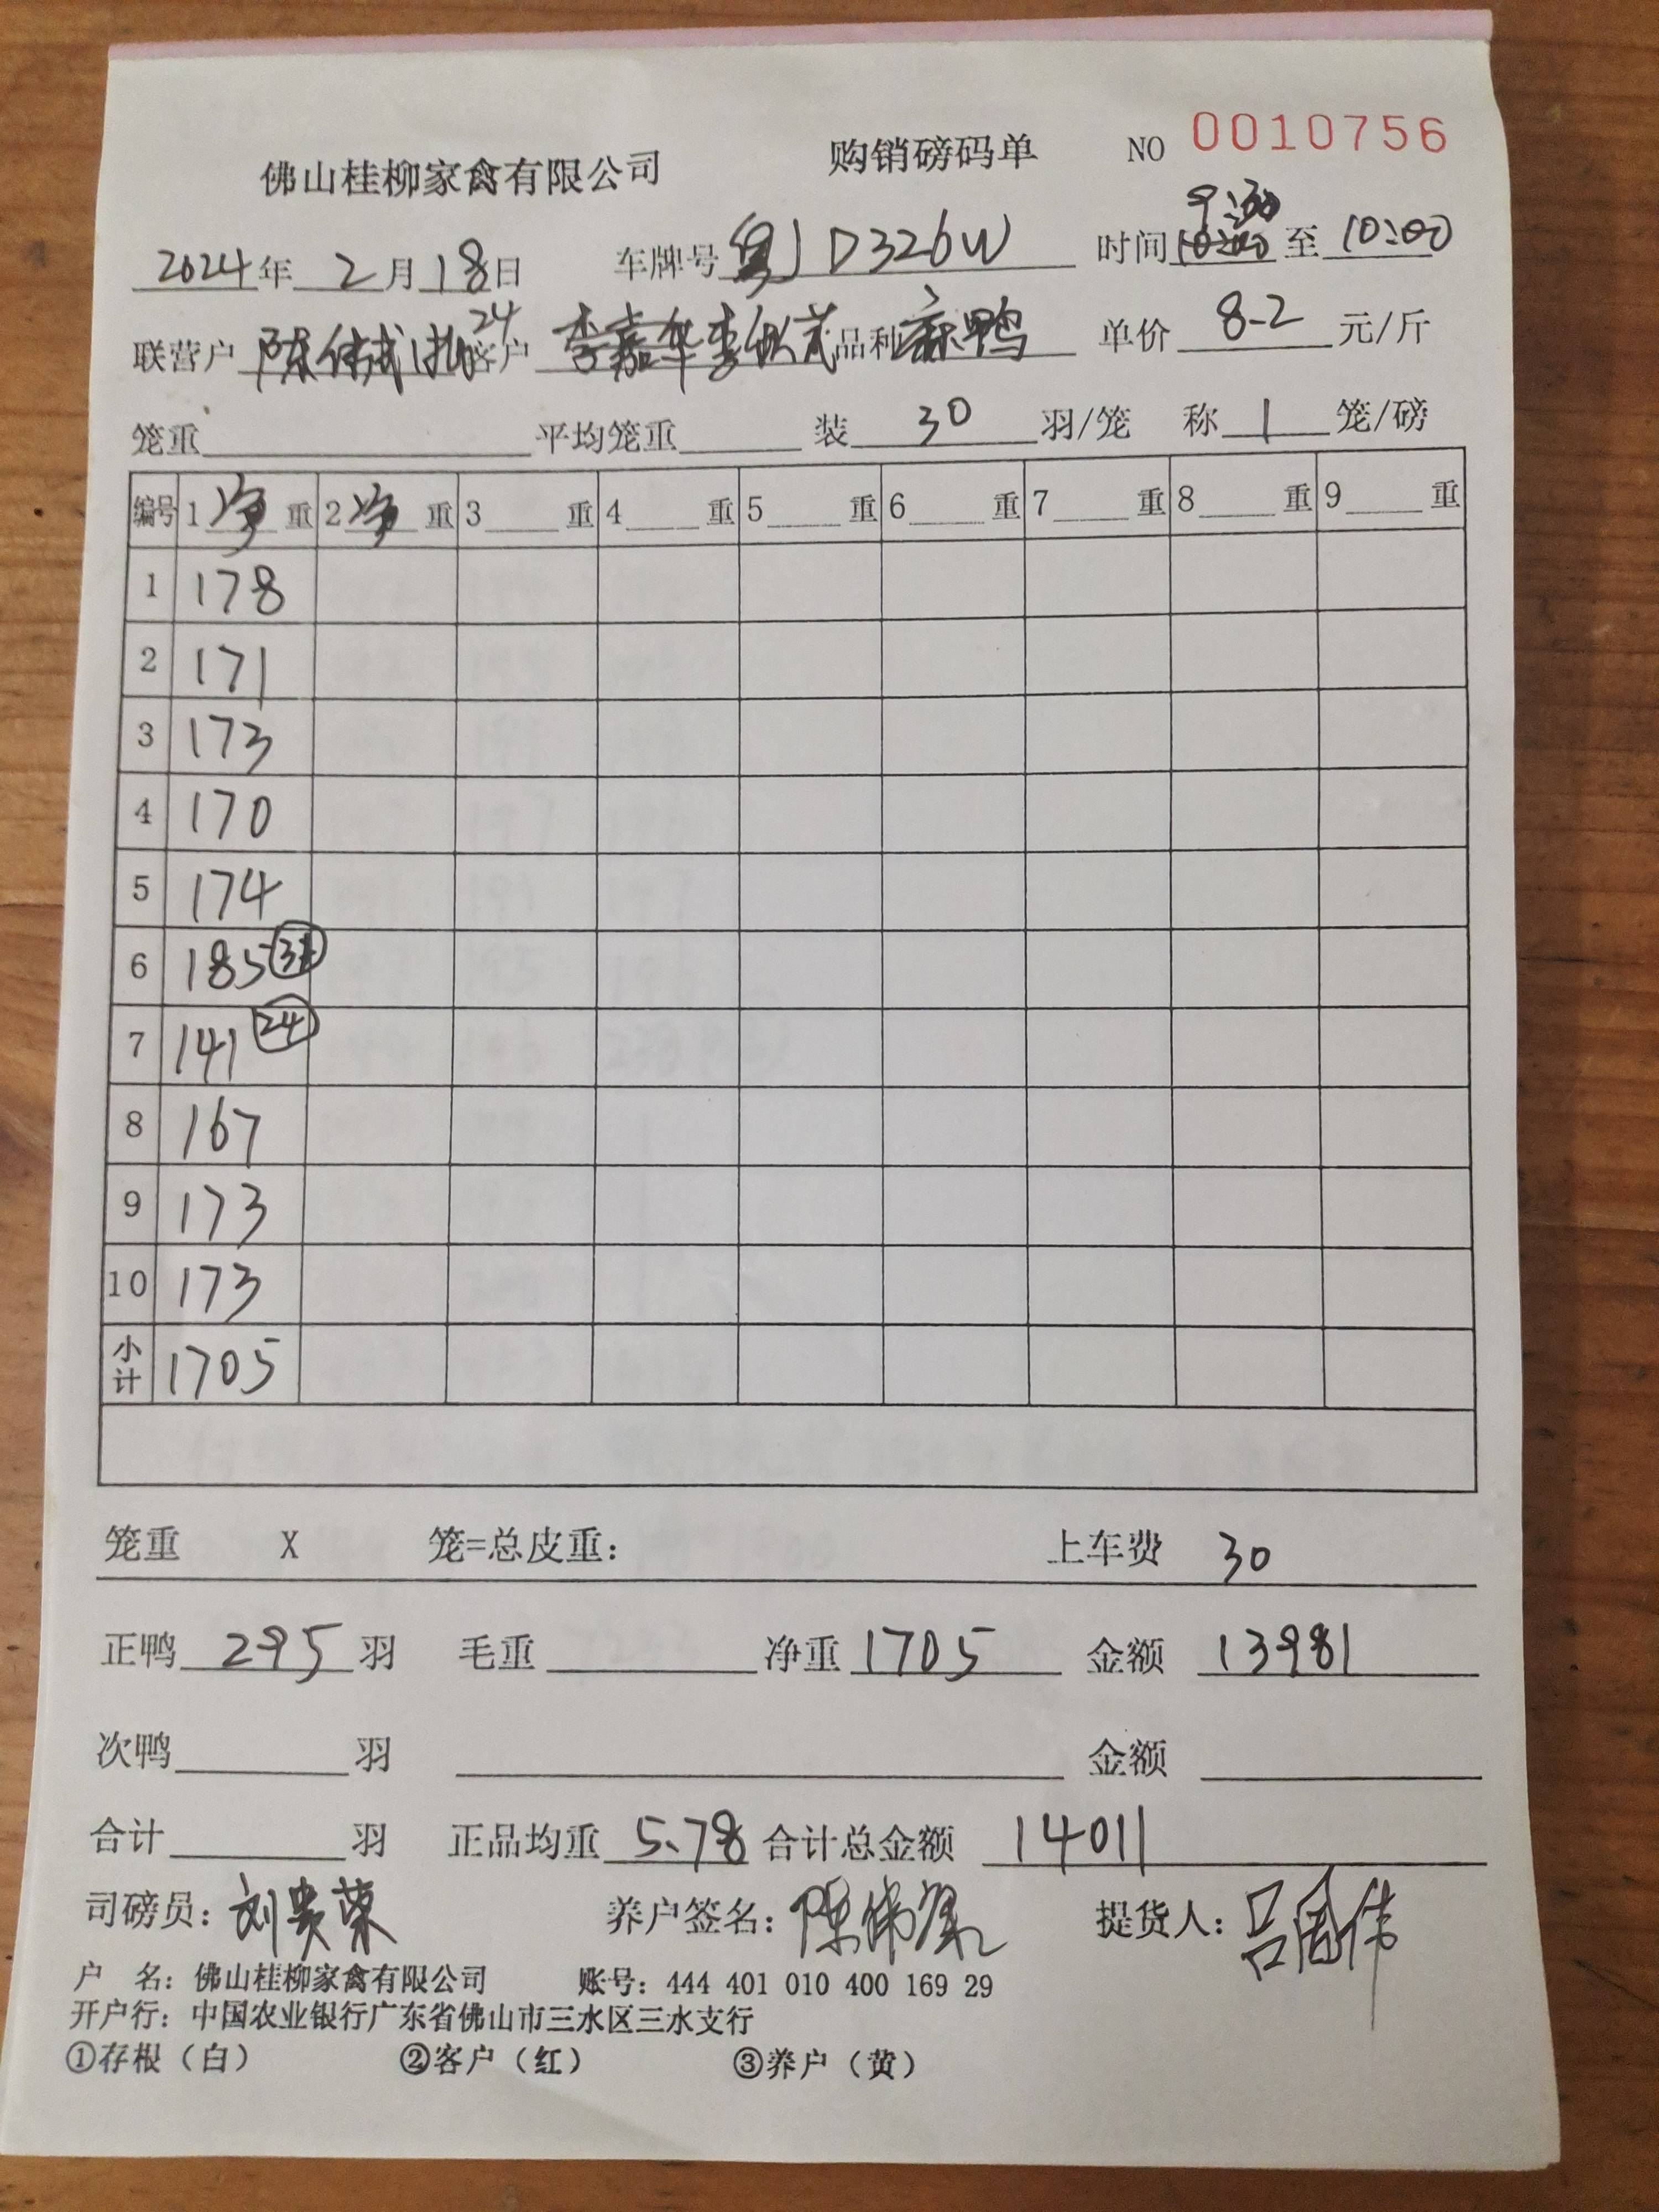 佛山桂柳家禽有限公司 购销磅码单 NO 0010756
9:30
2024年 2月18日 车牌号 粤J D326W 时间 至 10:00
24
联营户 陈伟 客户 李嘉华李 品种 麻鸭 单价 8.2 元/斤
笼重 平均笼重 装 30 羽/笼 称 1 笼/磅
编号 1 净 重 2 净 重 3 重 4 重 5 重 6 重 7 重 8 重 9 重
1 178
2 171
3 173
4 170
5 174
6 185 31
7 141 24
8 167
9 173
10 173
小计 1705
笼重 X 笼=总皮重: 上车费 30
正鸭 295 羽 毛重 净重 1705 金额 13981
次鸭 羽 金额
合计 羽 正品均重 5.78 合计总金额 14011
司磅员: 刘贵荣 养户签名: 陈伟 提货人: 吕 伟
户 名: 佛山桂柳家禽有限公司 账号: 444 401 010 400 169 29
开户行: 中国农业银行广东省佛山市三水区三水支行
①存根(白) ②客户(红) ③养户(黄)